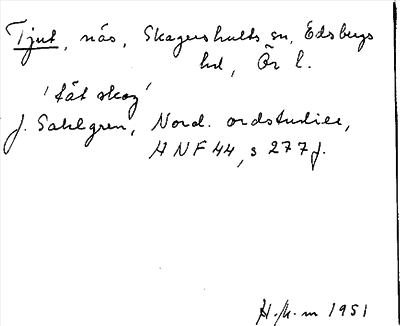 Tjut, näs, Skagershults sn, Edsbergs
hd, Ör l.
'tät skog'
J. Sahlgren, Nord. ordstudier,
ANF 44, s 277 f.
H. k-m 1951